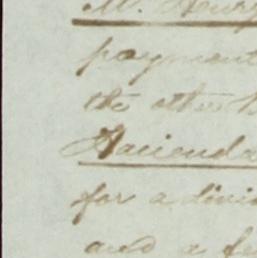 M. Henry
payment
the other
Hacienda
for a divi
and a fe